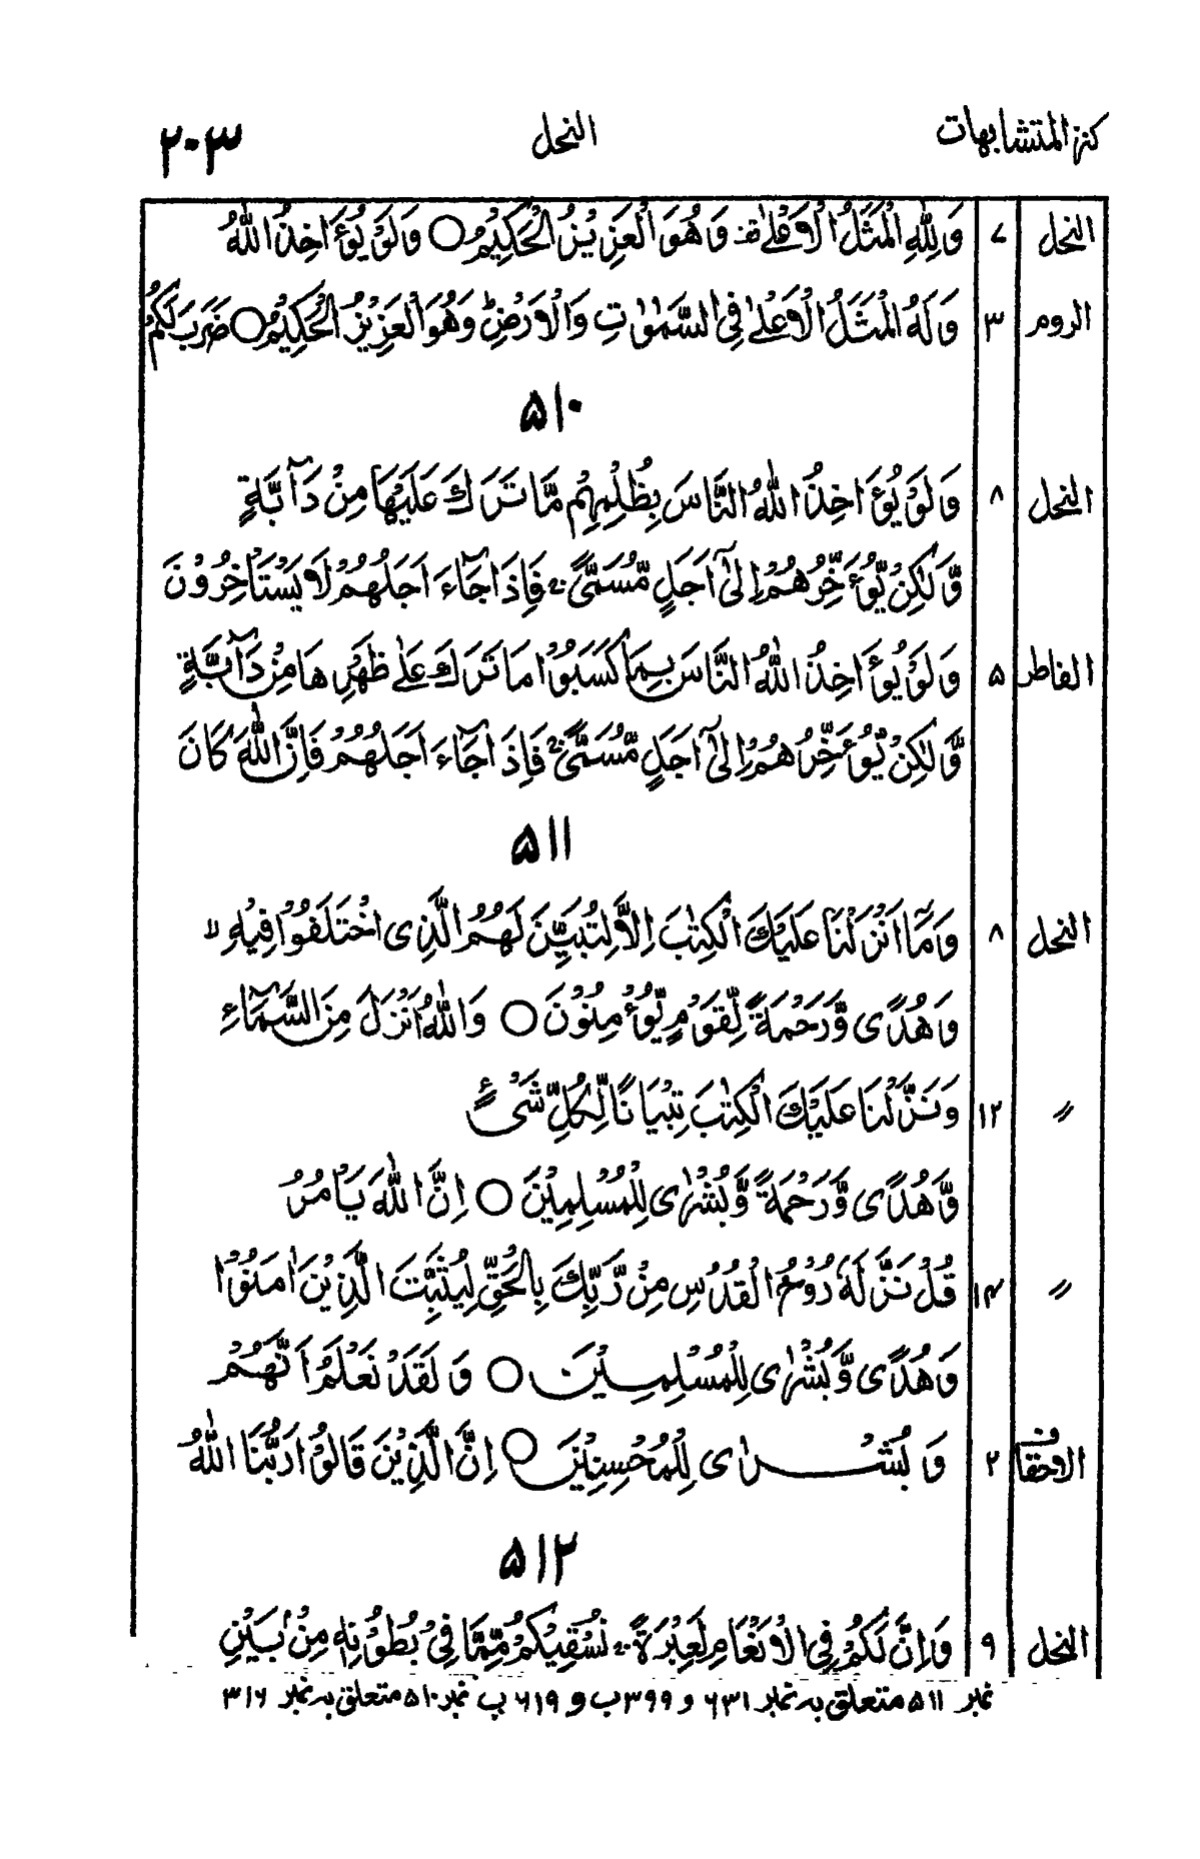 كنز المتشابهات النحل ۲۰۳
النحل ۷ وَلِلّٰهِ الْمَثَلُ الْاَعْلٰى ؕ وَهُوَ الْعَزِيْزُ الْحَكِيْمُ ○ وَلَوْ يُؤَاخِذُ اللّٰهُ
الروم ۳ وَلَهُ الْمَثَلُ الْاَعْلٰى فِى السَّمٰوٰتِ وَالْاَرْضِ ۚ وَهُوَ الْعَزِيْزُ الْحَكِيْمُ ○ ضَرَبَ لَكُمْ
۵۱۰
النحل ۸ وَلَوْ يُؤَاخِذُ اللّٰهُ النَّاسَ بِظُلْمِهِمْ مَّا تَرَكَ عَلَيْهَا مِنْ دَآبَّةٍ
وَّلٰكِنْ يُّؤَخِّرُهُمْ اِلٰٓى اَجَلٍ مُّسَمًّى ۚ فَاِذَا جَآءَ اَجَلُهُمْ لَا يَسْتَاْخِرُوْنَ
الفاطر ۵ وَلَوْ يُؤَاخِذُ اللّٰهُ النَّاسَ بِمَا كَسَبُوْا مَا تَرَكَ عَلٰى ظَهْرِهَا مِنْ دَآبَّةٍ
وَّلٰكِنْ يُّؤَخِّرُهُمْ اِلٰٓى اَجَلٍ مُّسَمًّى ۚ فَاِذَا جَآءَ اَجَلُهُمْ فَاِنَّ اللّٰهَ كَانَ
۵۱۱
النحل ۸ وَمَآ اَنْزَلْنَا عَلَيْكَ الْكِتٰبَ اِلَّا لِتُبَيِّنَ لَهُمُ الَّذِى اخْتَلَفُوْا فِيْهِ ۙ
وَهُدًى وَّرَحْمَةً لِّقَوْمٍ يُّؤْمِنُوْنَ ○ وَاللّٰهُ اَنْزَلَ مِنَ السَّمَآءِ
〃 ۱۲ وَنَزَّلْنَا عَلَيْكَ الْكِتٰبَ تِبْيَانًا لِّكُلِّ شَىْءٍ
وَّهُدًى وَّرَحْمَةً وَّبُشْرٰى لِلْمُسْلِمِيْنَ ○ اِنَّ اللّٰهَ يَاْمُرُ
〃 ۱۴ قُلْ نَزَّلَهٗ رُوْحُ الْقُدُسِ مِنْ رَّبِّكَ بِالْحَقِّ لِيُثَبِّتَ الَّذِيْنَ اٰمَنُوْا
وَهُدًى وَّبُشْرٰى لِلْمُسْلِمِيْنَ ○ وَلَقَدْ نَعْلَمُ اَنَّهُمْ
الاحقاف ۲ وَبُشْرٰى لِلْمُحْسِنِيْنَ ○ اِنَّ الَّذِيْنَ قَالُوْا رَبُّنَا اللّٰهُ
۵۱۲
النحل ۹ وَاِنَّ لَكُمْ فِى الْاَنْعَامِ لَعِبْرَةً ؕ نُسْقِيْكُمْ مِّمَّا فِىْ بُطُوْنِهٖ مِنْۢ بَيْنِ
نمبر ۵۱۱ متعلق بہ نمبر ۶۳۱ و ۳۹۹ ب و ۶۱۹ پ نمبر ۵۱۰ متعلق بہ نمبر ۳۱۶